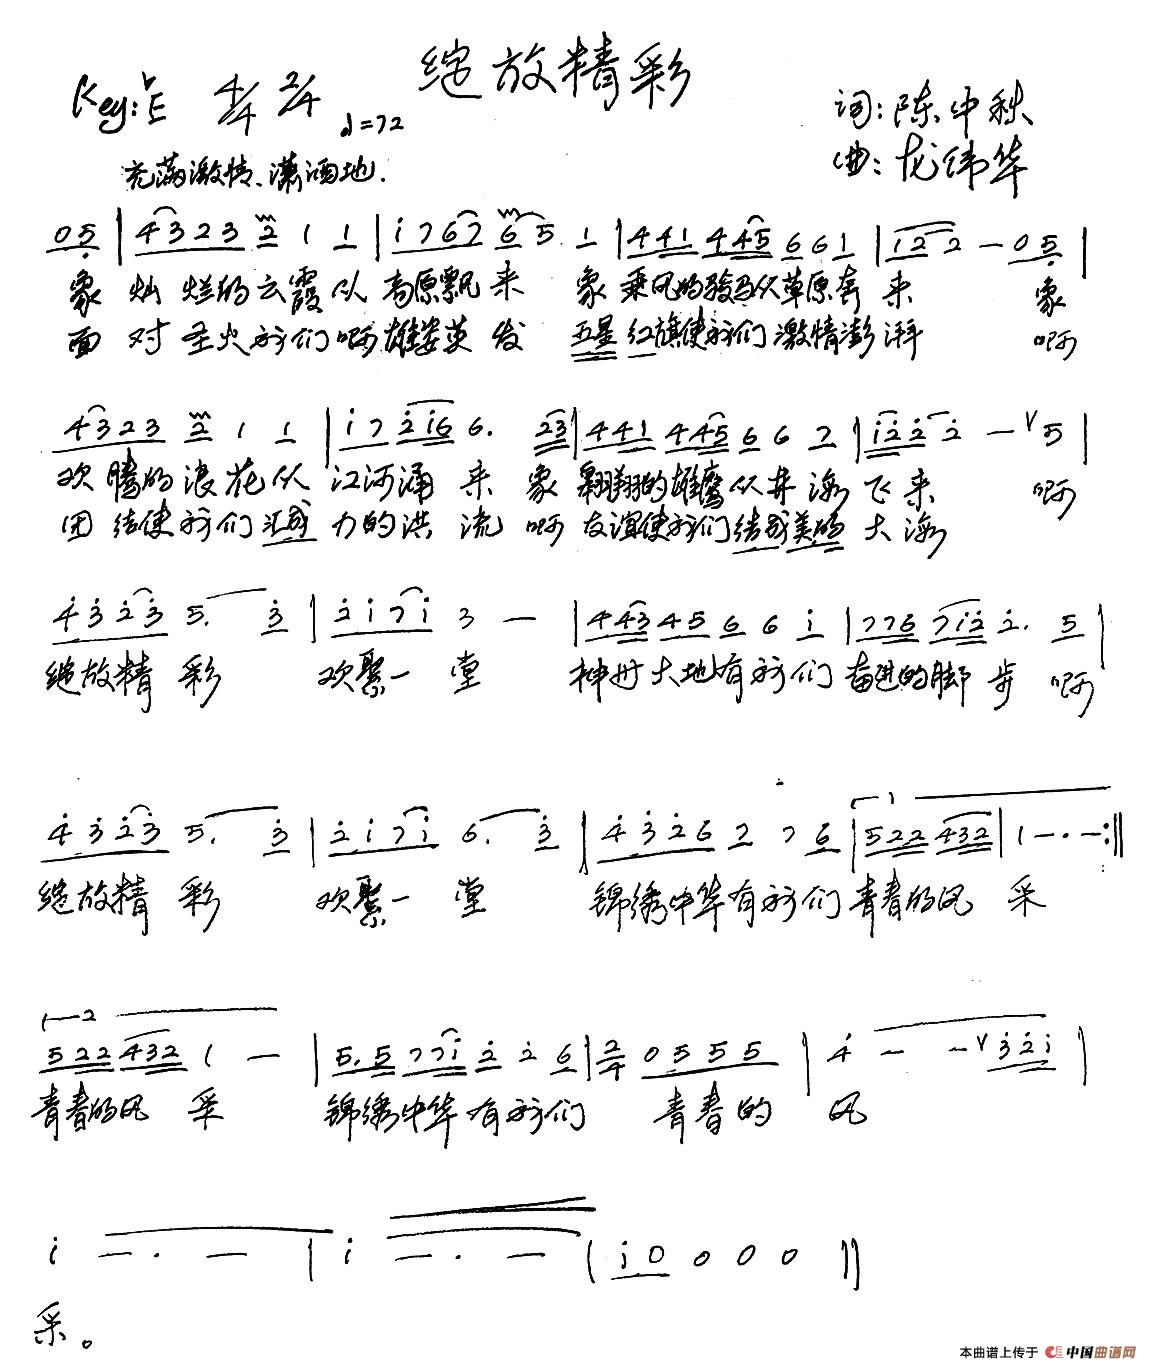 绽放精彩
Key:♭E 4/4 2/4 ♩=72
词:陈中秋
曲:龙纬华
充满激情、潇洒地.
05 | 4323 2 1 1 | i767 65. 1 | 441 445 661 | i22 - 05 |
象 灿烂的云霞从高原飘来 象乘风的骏马从草原奔来 象
面对圣火我们啊雄姿英发 五星红旗使我们激情澎湃 啊
4323 2 1 1 | i7 2i6 6. 23 | 441 445 6 6 7 | i22 2 - V 5 |
欢腾的浪花从江河涌来 象翱翔的雄鹰从林海飞来 啊
团结使我们汇成力的洪流 啊友谊使我们结成美的大海
4323 5. 3 | 2i7i 3 - | 443 45 6 6 i | 776 7i2 2. 5 |
绽放精彩 欢聚一堂 神州大地有我们奋进的脚步 啊
4323 5. 3 | 2i7i 6. 3 | 4326 7 7 6 | 1 522 432 | 1 - . - :||
绽放精彩 欢聚一堂 锦绣中华有我们青春的风采
2 522 432 1 - | 5.5 77i 2 2 6 | 2/4 0555 | 4 - - V 32i |
青春的风采 锦绣中华有我们 青春的风
i - . - | i - . - | i0 0 0 0 ||
采。
本曲谱上传于 中国曲谱网